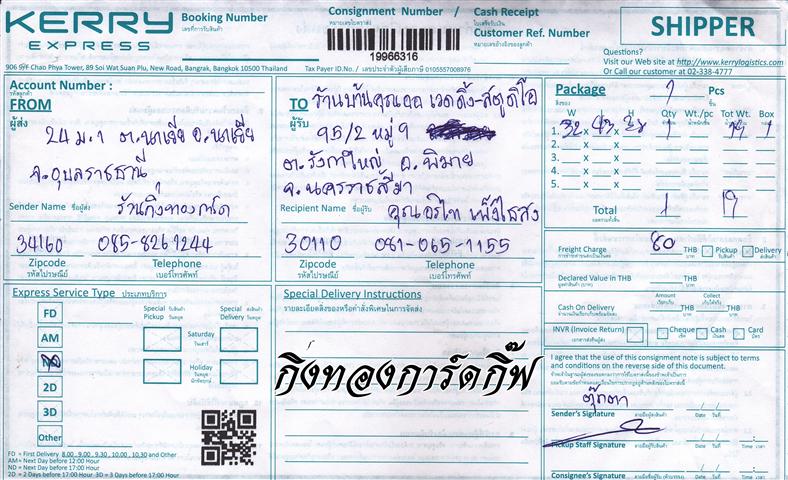 KERRY
EXPRESS
Booking Number
หมายเลขการรับสินค้า
Consignment Number /
หมายเลขใบตราส่ง
Cash Receipt
ใบเสร็จรับเงิน
19966316
Customer Ref. Number
หมายเลขอ้างอิงของลูกค้า
SHIPPER
Questions?
Visit our Web site at http://www.kerrylogistics.com
Or Call our customer at 02-338-4777
906 9/F Chao Phya Tower, 89 Soi Wat Suan Plu, New Road, Bangrak, Bangkok 10500 Thailand
Tax Payer ID.No./ เลขประจำตัวผู้เสียภาษี 0105557008976
Account Number :
รหัสลูกค้า
FROM
ผู้ส่ง
24 ม.1 ต.นาเยีย อ.นาเยีย
จ.อุบลราชธานี
Sender Name ชื่อผู้ส่ง ร้านกิ่งทองการ์ด
34160 085-8261244
Zipcode Telephone
รหัสไปรษณีย์ เบอร์โทรศัพท์
TO ร้านบ้านคุณออ เวดดิ้ง-สตูดิโอ
ผู้รับ 95/2 หมู่ 9
ต.รังกาใหญ่ อ.พิมาย
จ.นครราชสีมา
Recipient Name ชื่อผู้รับ
30110 081-065-1155
Zipcode Telephone
รหัสไปรษณีย์ เบอร์โทรศัพท์
Package 1 Pcs
สิ่งของ ชิ้น
W L H Qty Wt./pc Tot Wt. Box
1. 32 x 43 x 28 1 19 1
2. x x
3. x x
4. x x
5. x x
Total 1 19
Freight Charge 80 THB Pickup Delivery
บาท รับสินค้า ส่งสินค้า
Declared Value in THB THB
บาท
Amount Collect
Cash On Delivery THB
บาท
INVR (Invoice Return) Cheque Cash Card
เช็ค เงินสด บัตร
I agree that the use of this consignment note is subject to terms
and conditions on the reverse side of this document.
ตุ๊กตา
Sender's Signature ลายมือผู้ส่งสินค้า Date วันที่ Time เวลา
Pickup Staff Signature Date วันที่ Time เวลา
Consignee's Signature Date วันที่ Time เวลา
Express Service Type ประเภทบริการ
Special Pickup รับสินค้า วันหยุด
Special Delivery ส่งสินค้า วันหยุด
FD
AM
ND
2D
3D
Other
Saturday
วันเสาร์
Holiday
วันหยุด
นักขัตฤกษ์
FD = First Delivery 8.00, 9.00, 9.30, 10.00, 10.30 and Other
AM= Next Day before 12:00 Hour
ND = Next Day before 17:00 Hour
2D = 2 Days before 17:00 Hour 3D = 3 Days before 17:00 Hour
Special Delivery Instructions
รายละเอียดสิ่งของหรือคำสั่งพิเศษในการจัดส่ง
กิ่งทองการ์ดกิ๊ฟ